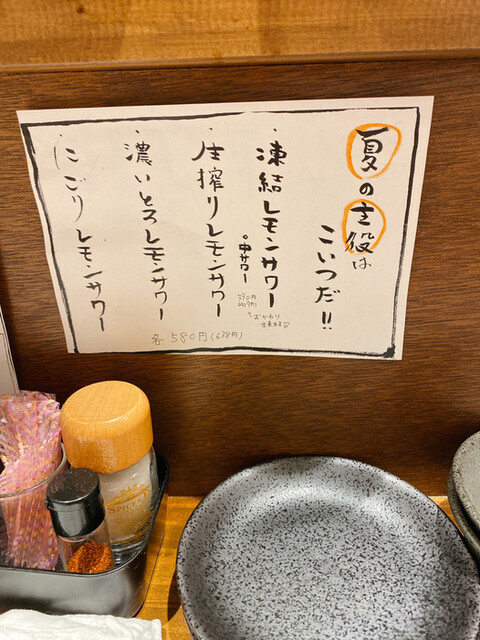 夏の主役は
こいつだ!!
・凍結レモンサワー
。中サワー
390円
(429円)
・生搾りレモンサワー
・濃いとろレモンサワー
・にごりレモンサワー
各580円(638円)